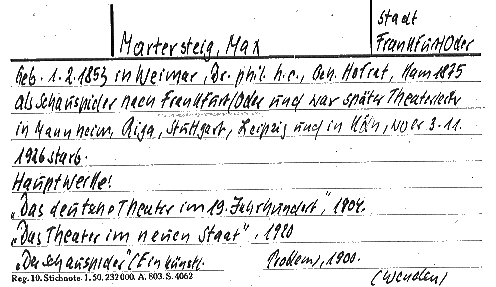 Stadt
Martersteig, Max Frankfurt/Oder
Geb. 1.2.1853 in Weimar, Dr. phil. h.c., Geh. Hofrat, kam 1875
als Schauspieler nach Frankfurt/Oder und war später Theaterleiter
in Mannheim, Riga, Stuttgart, Leipzig und in Köln, wo er 3.11.
1926 starb.
Hauptwerke:
„Das deutsche Theater im 19. Jahrhundert", 1904.
„Das Theater im neuen Staat", 1920
„Der Schauspieler" (Ein künstl. Problem), 1900.
Reg. 10. Stichnote. 1. 50. 232000. A. 803. S. 4062
(Wenden)